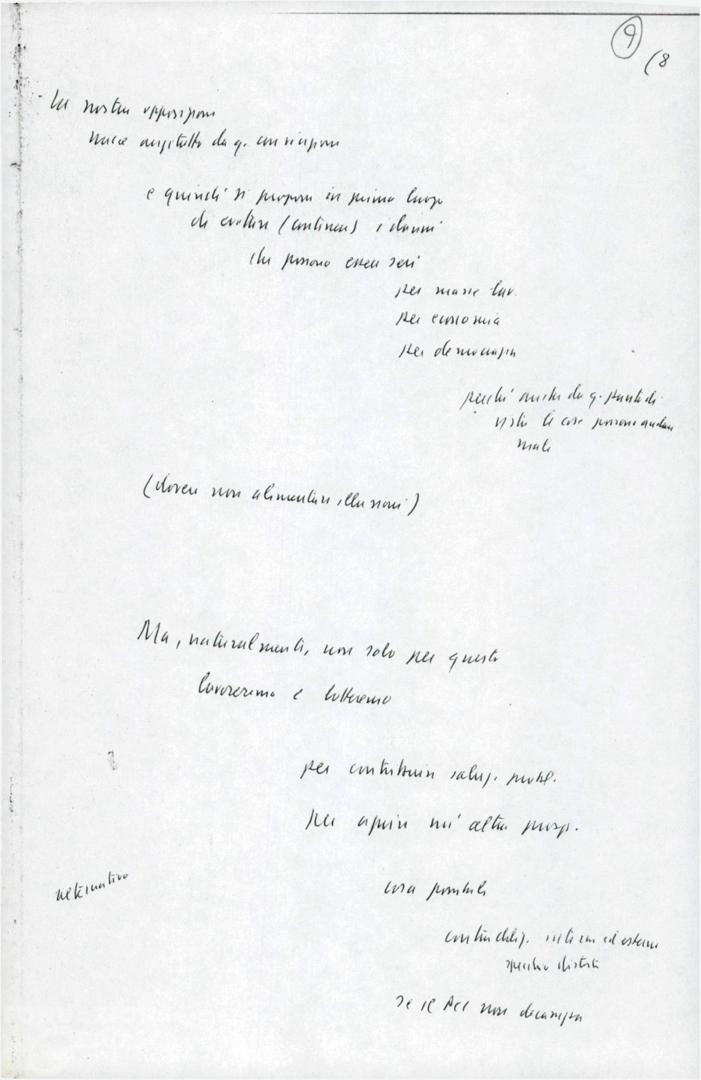 9
(8
La nostra opposizione
nasce anzitutto da q. convinzione
e quindi si propone in primo luogo
di evitare (contenere) i danni
che possono essere seri
per masse lav.
per economia
per democrazia
perché anche da q. punto di
vista le cose possono andare
male
(dovere non alimentare illusioni)
Ma, naturalmente, non solo per questo
lavoreremo e lotteremo
per contribuire soluz. probl.
per aprire un'altra prosp.
alternativa
cosa possibile
contraddiz. interne ed esterne
se il PCI non